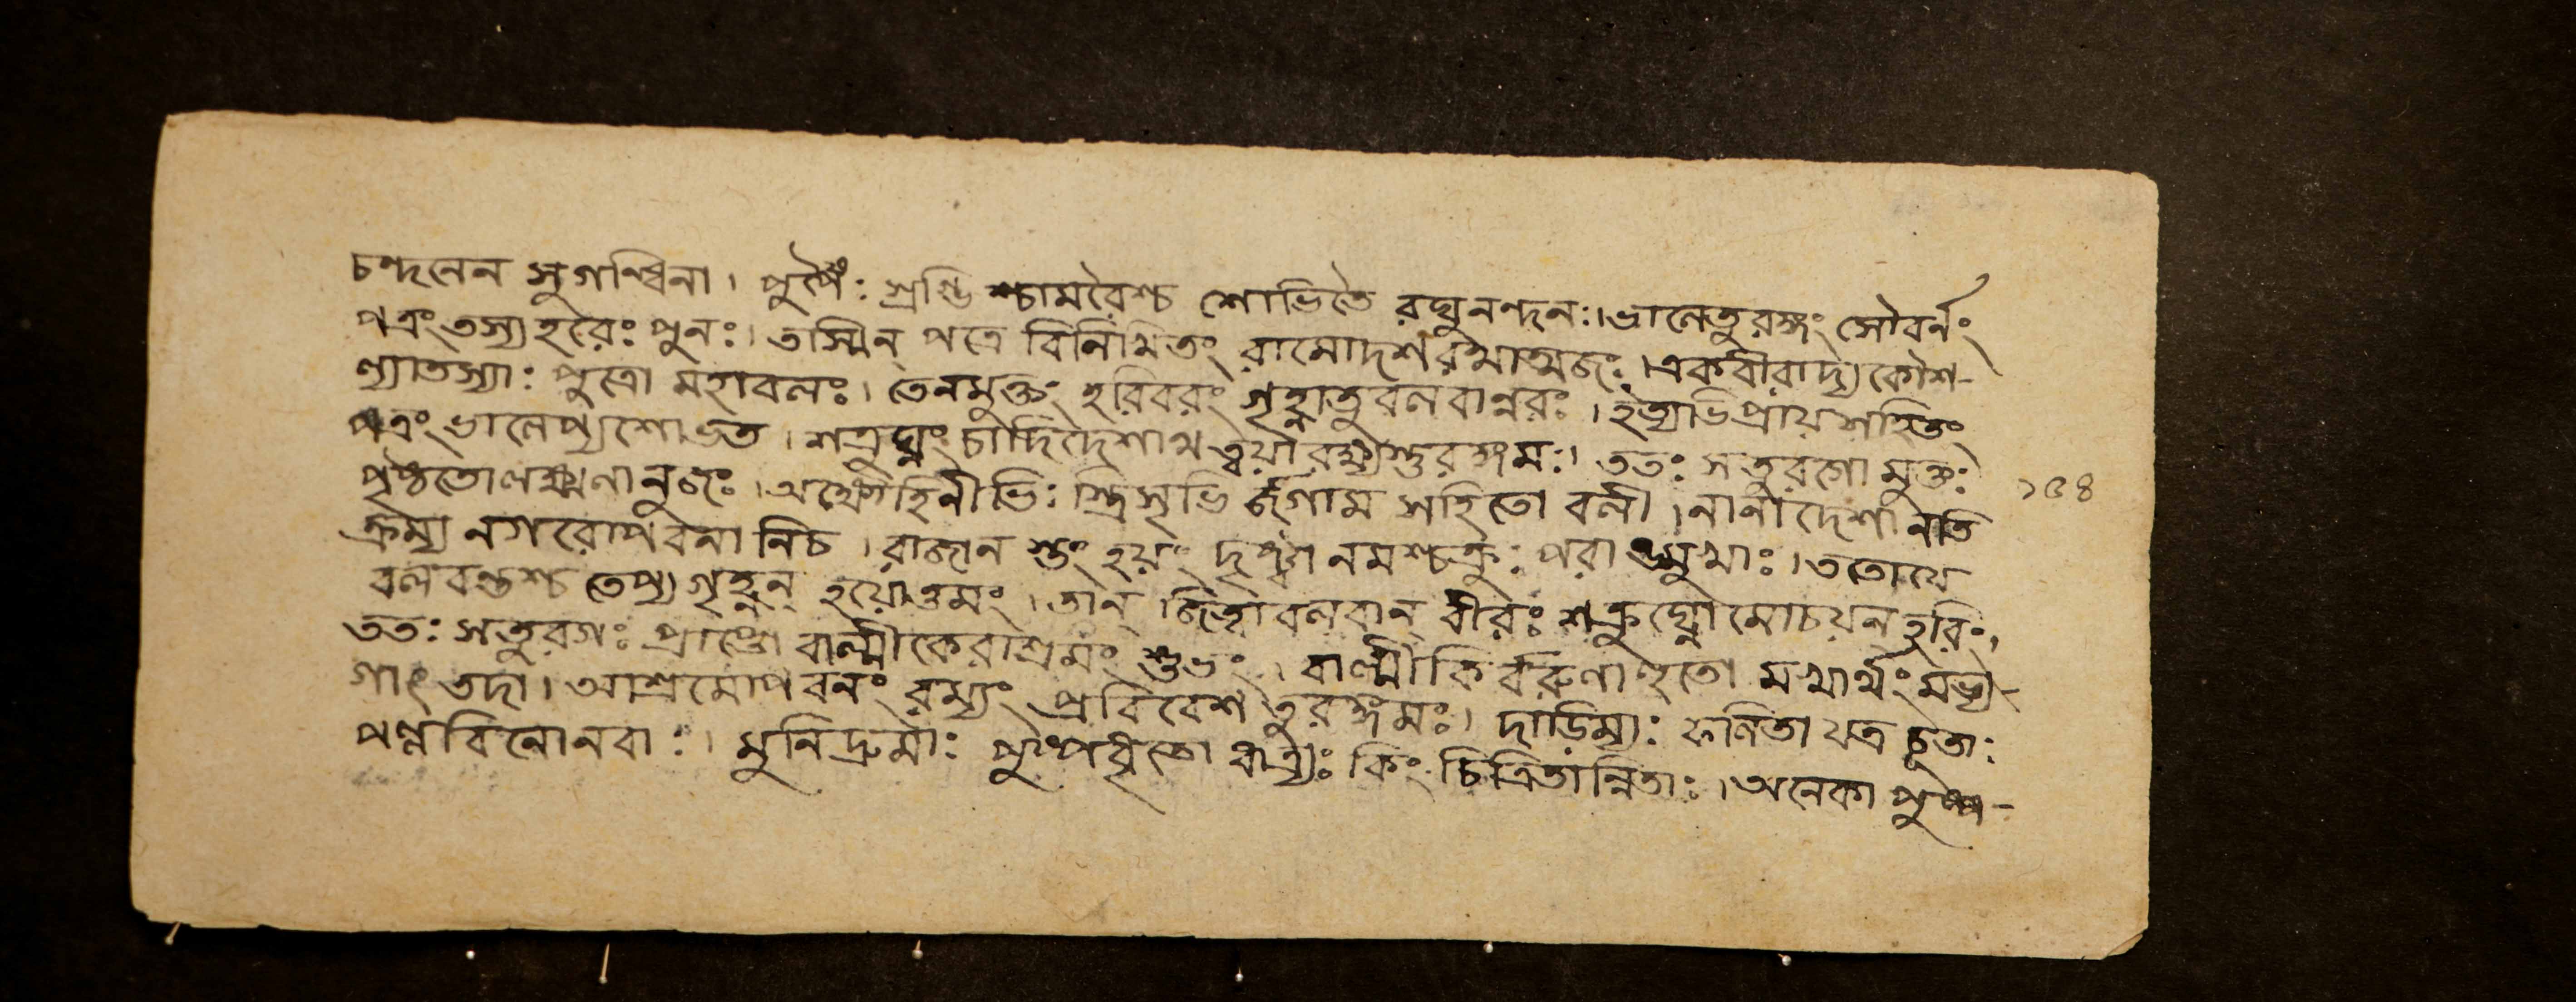 চন্দনেন সুগন্ধিনা। পুষ্পৈঃ স্রগ্ভি শ্চামরৈশ্চ শোভিতৈ রঘুনন্দনঃ। ভালেতুরঙ্গং সৌবর্নং
পত্রং তস্য হরেঃ পুনঃ। তস্মিন্ পত্রে বিনির্মিতং রামোদশরথাত্মজঃ। একবীরাদ্য কৌশ-
ল্যাতস্যাঃ পুত্রো মহাবলঃ। তেনমুক্তং হরিবরং গৃহ্ণাতুবলবান্নরঃ। ইত্যভিপ্রায়সহিতং
পত্রং ভালেপ্যশোভত। শত্রুঘ্নং চাদিদেশাথ ত্বয়ারক্ষ্যস্তুরঙ্গমঃ। ততঃ সতুরগো মুক্তঃ
পৃষ্ঠতোলক্ষ্মণানুজঃ। অক্ষৌহিনীভিঃ স্ত্রিসৃভি র্জগাম সহিতো বলী। নানাদেশানতি
ক্রম্য নগরোপবনানিচ। রাজান স্তং হয়ং দৃষ্ট্বা নমশ্চক্রুঃ পরাঙ্মুখাঃ। ততোযে
বলবন্তশ্চ তেপ্য গৃহ্ণন্ হয়োত্তমং। তান্ জিত্বাবলবান্ বীরঃ শত্রুঘ্নোমোচয়ন্ হরিং,
ততঃ সতুরগঃ প্রাপ্তো বাল্মীকেরাশ্রমং শুভং। বাল্মীকি র্বরুণাহূতো মখার্থং মভ্য-
গাৎ তদা। আশ্রমোপবনং রম্যং প্রবিবেশ তুরঙ্গমঃ। দাড়িম্যঃ ফলিতা যত্র চূতাঃ
পল্লবিনোনবাঃ। মুনিদ্রুমাঃ পুষ্পবৃন্তো ধাত্র্যঃ কিং চিত্রিতান্নিতাঃ। অনেকা পুষ্প-
১৫৪